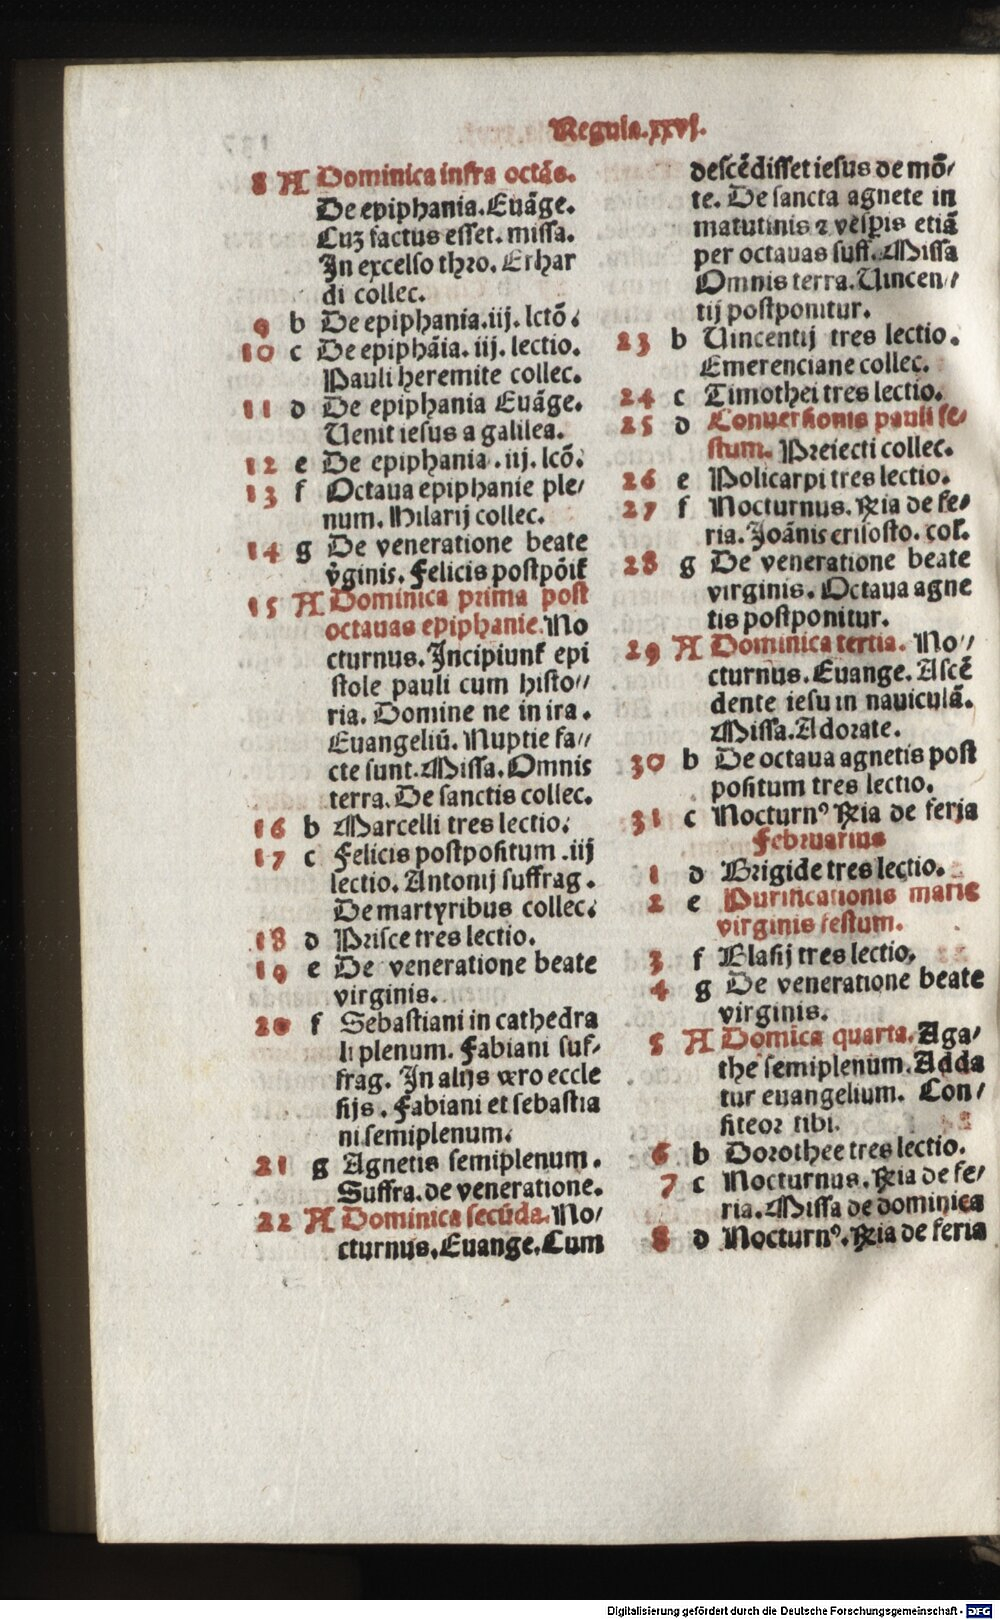 Regula.xxvj.
8 A Dominica infra octãs.
De epiphania. Euãge.
Cuʒ factus esset. missa.
In excelso thro. Erhar
di collec.
9 b De epiphania. iij. lctõ.
10 c De epiphãia. iij. lectio.
Pauli heremite collec.
11 d De epiphania Euãge.
Uenit iesus a galilea.
12 e De epiphania .iij. lcõ.
13 f Octaua epiphanie ple/
num. Hilarij collec.
14 g De veneratione beate
v̓ginis. Felicis postpõiť
15 A Dominica prima post
octauas epiphanie. No
cturnus. Incipiunť epi
stole pauli cum histo//
ria. Domine ne in ira.
Euangeliũ. Nuptie fa//
cte sunt. Missa. Omnis
terra. De sanctis collec.
16 b Marcelli tres lectio.
17 c Felicis postpositum .iij
lectio. Antonij suffrag.
De martyribus collec.
18 d Prisce tres lectio.
19 e De veneratione beate
virginis.
20 f Sebastiani in cathedra
li plenum. Fabiani suf/
frag. In alijs vero eccle
sijs. Fabiani et sebastia
ni semiplenum.
21 g Agnetis semiplenum.
Suffra. de veneratione.
22 A Dominica secũda. No/
cturnus. Euange. Cum
descẽdisset iesus de mõ/
te. De sancta agnete in
matutinis ⁊ vesꝑis etiã
per octauas suff. Missa
Omnis terra. Uincen//
tij postponitur.
23 b Uincentij tres lectio.
Emerenciane collec.
24 c Timothei tres lectio.
25 d Conuersionis pauli fe/
stum. Preiecti collec.
26 e Policarpi tres lectio.
27 f Nocturnus. ℞ia de fe/
ria. Joãnis crisosto. col.
28 g De veneratione beate
virginis. Octaua agne
tis postponitur.
29 A Dominica tertia. No//
cturnus. Euange. Ascẽ
dente iesu in nauiculã.
Missa. Adorate.
30 b De octaua agnetis post
positum tres lectio.
31 c Nocturnꝰ ℞ia de feria
Februarius
1 d Brigide tres lectio.
2 e Purificationis marie
virginis festum.
3 f Blasij tres lectio.
4 g De veneratione beate
virginis.
5 A Domica quarta. Aga/
the semiplenum. Adda
tur euangelium. Con/
fiteor tibi.
6 b Dorothee tres lectio.
7 c Nocturnus. ℞ia de fe/
ria. Missa de dominica
8 d Nocturnꝰ. ℞ia de feria
Digitalisierung gefördert durch die Deutsche Forschungsgemeinschaft - DFG